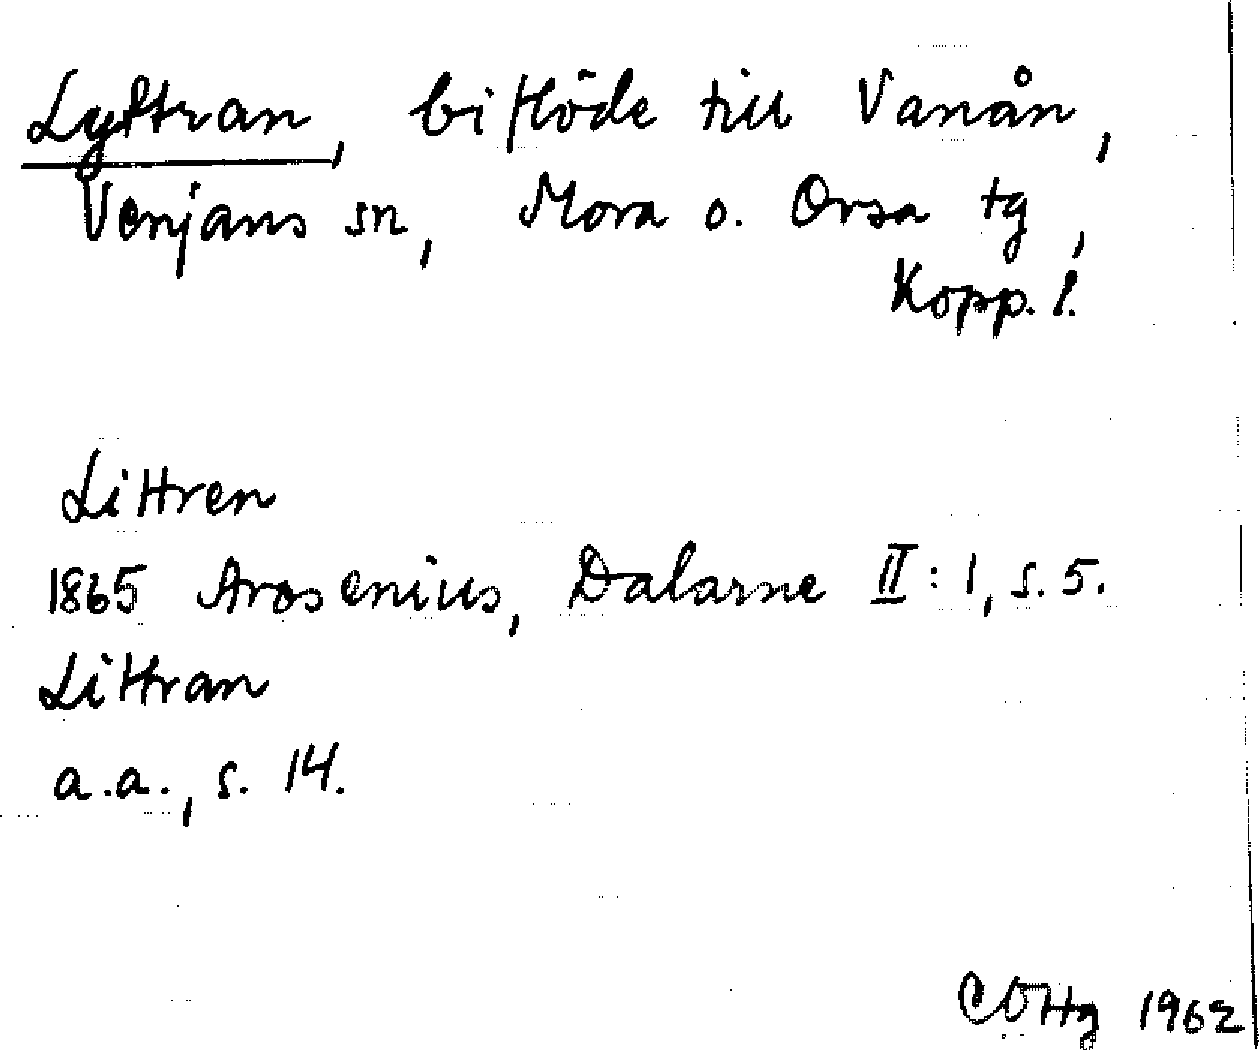 Lyftran, biflöde till Vanån,
Venjans sn, Mora o. Orsa tg,
Kopp. l.
Littren
1865 Arosenius, Dalarne II: 1, s. 5.
Littran
a.a., s. 14.
COHg 1962